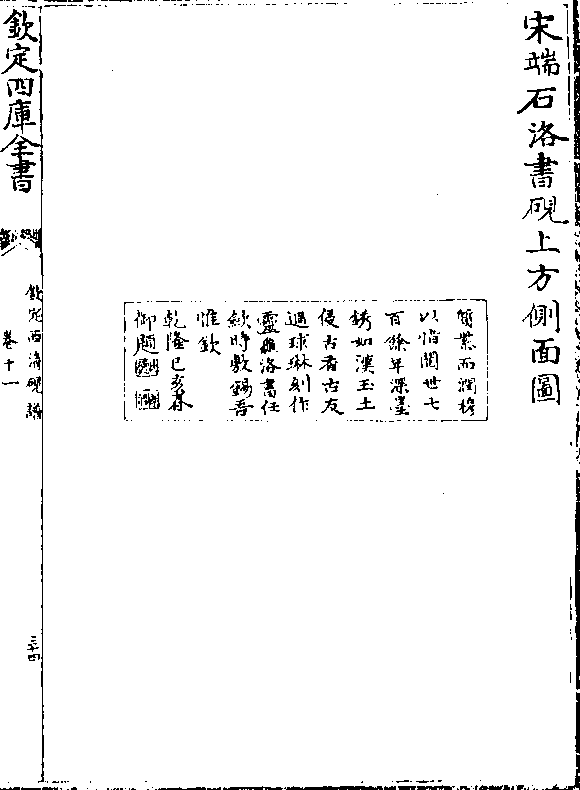 宋端石洛書硯上方側面圖
而潤穆
以惜閲世七
百餘年深墨
銹如漢玉土
侵古香古友
過球琳刻作
靈龜洛書任
歛時敷錫吾
惟欽
乾隆己亥春
御題
欽定四庫全書
欽定西清硯譜
卷十一
三十四